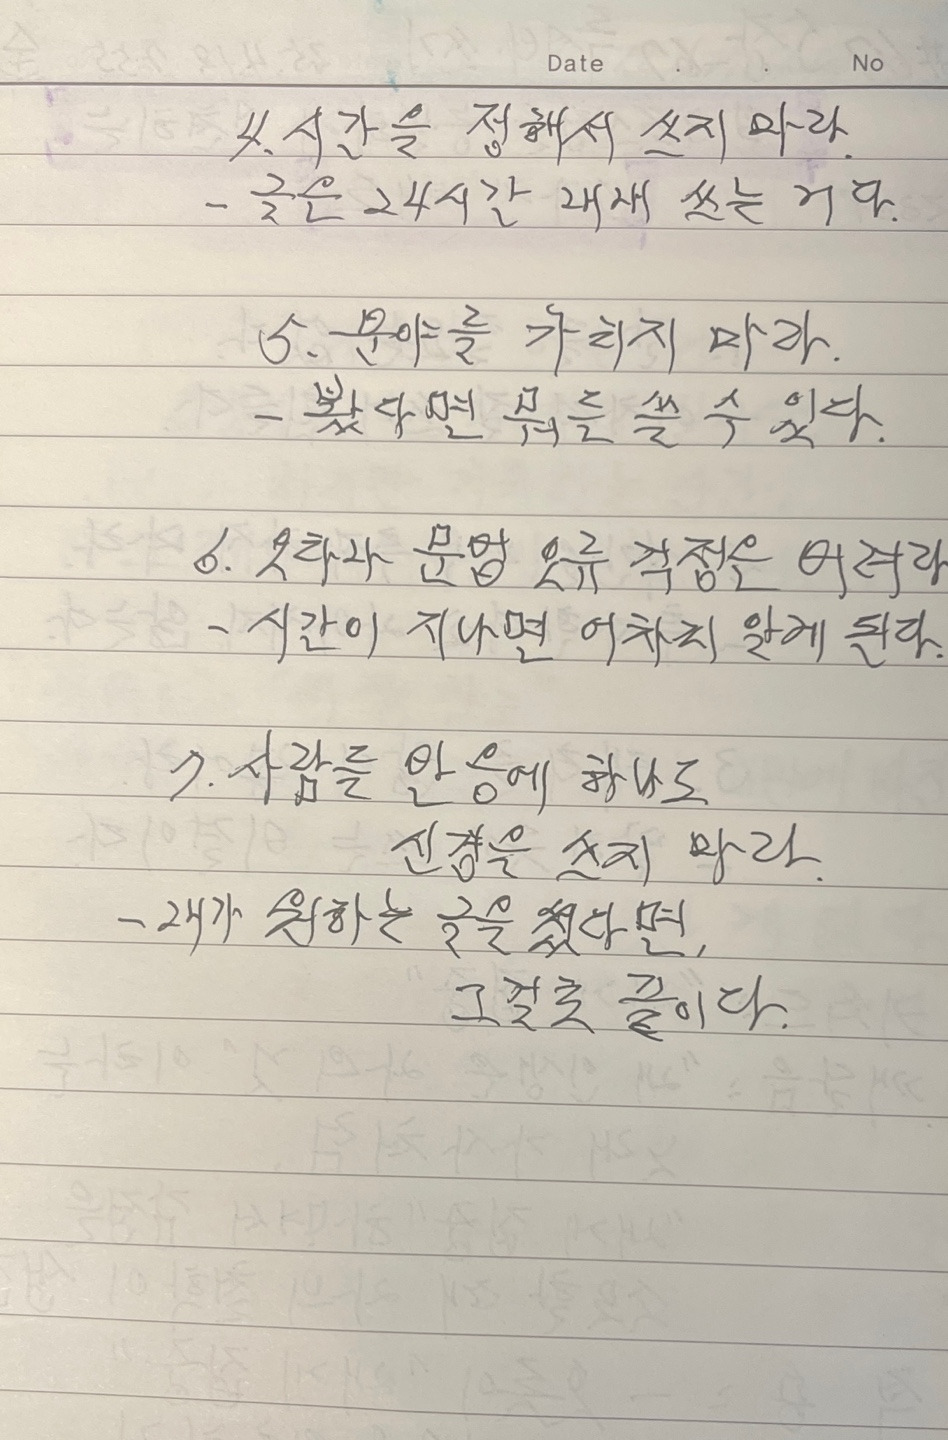 Date . . No
4. 시간을 정해서 쓰지 마라.
- 글은 24시간 내내 쓰는 거다.
5. 분야를 가리지 마라.
- 봤다면 뭐든 쓸 수 있다.
6. 오타와 문법 오류 걱정은 버려라
- 시간이 지나면 어차피 알게 된다.
7. 사람들 반응에 하나도
신경을 쓰지 마라.
- 내가 원하는 글을 썼다면,
그걸로 끝이다.